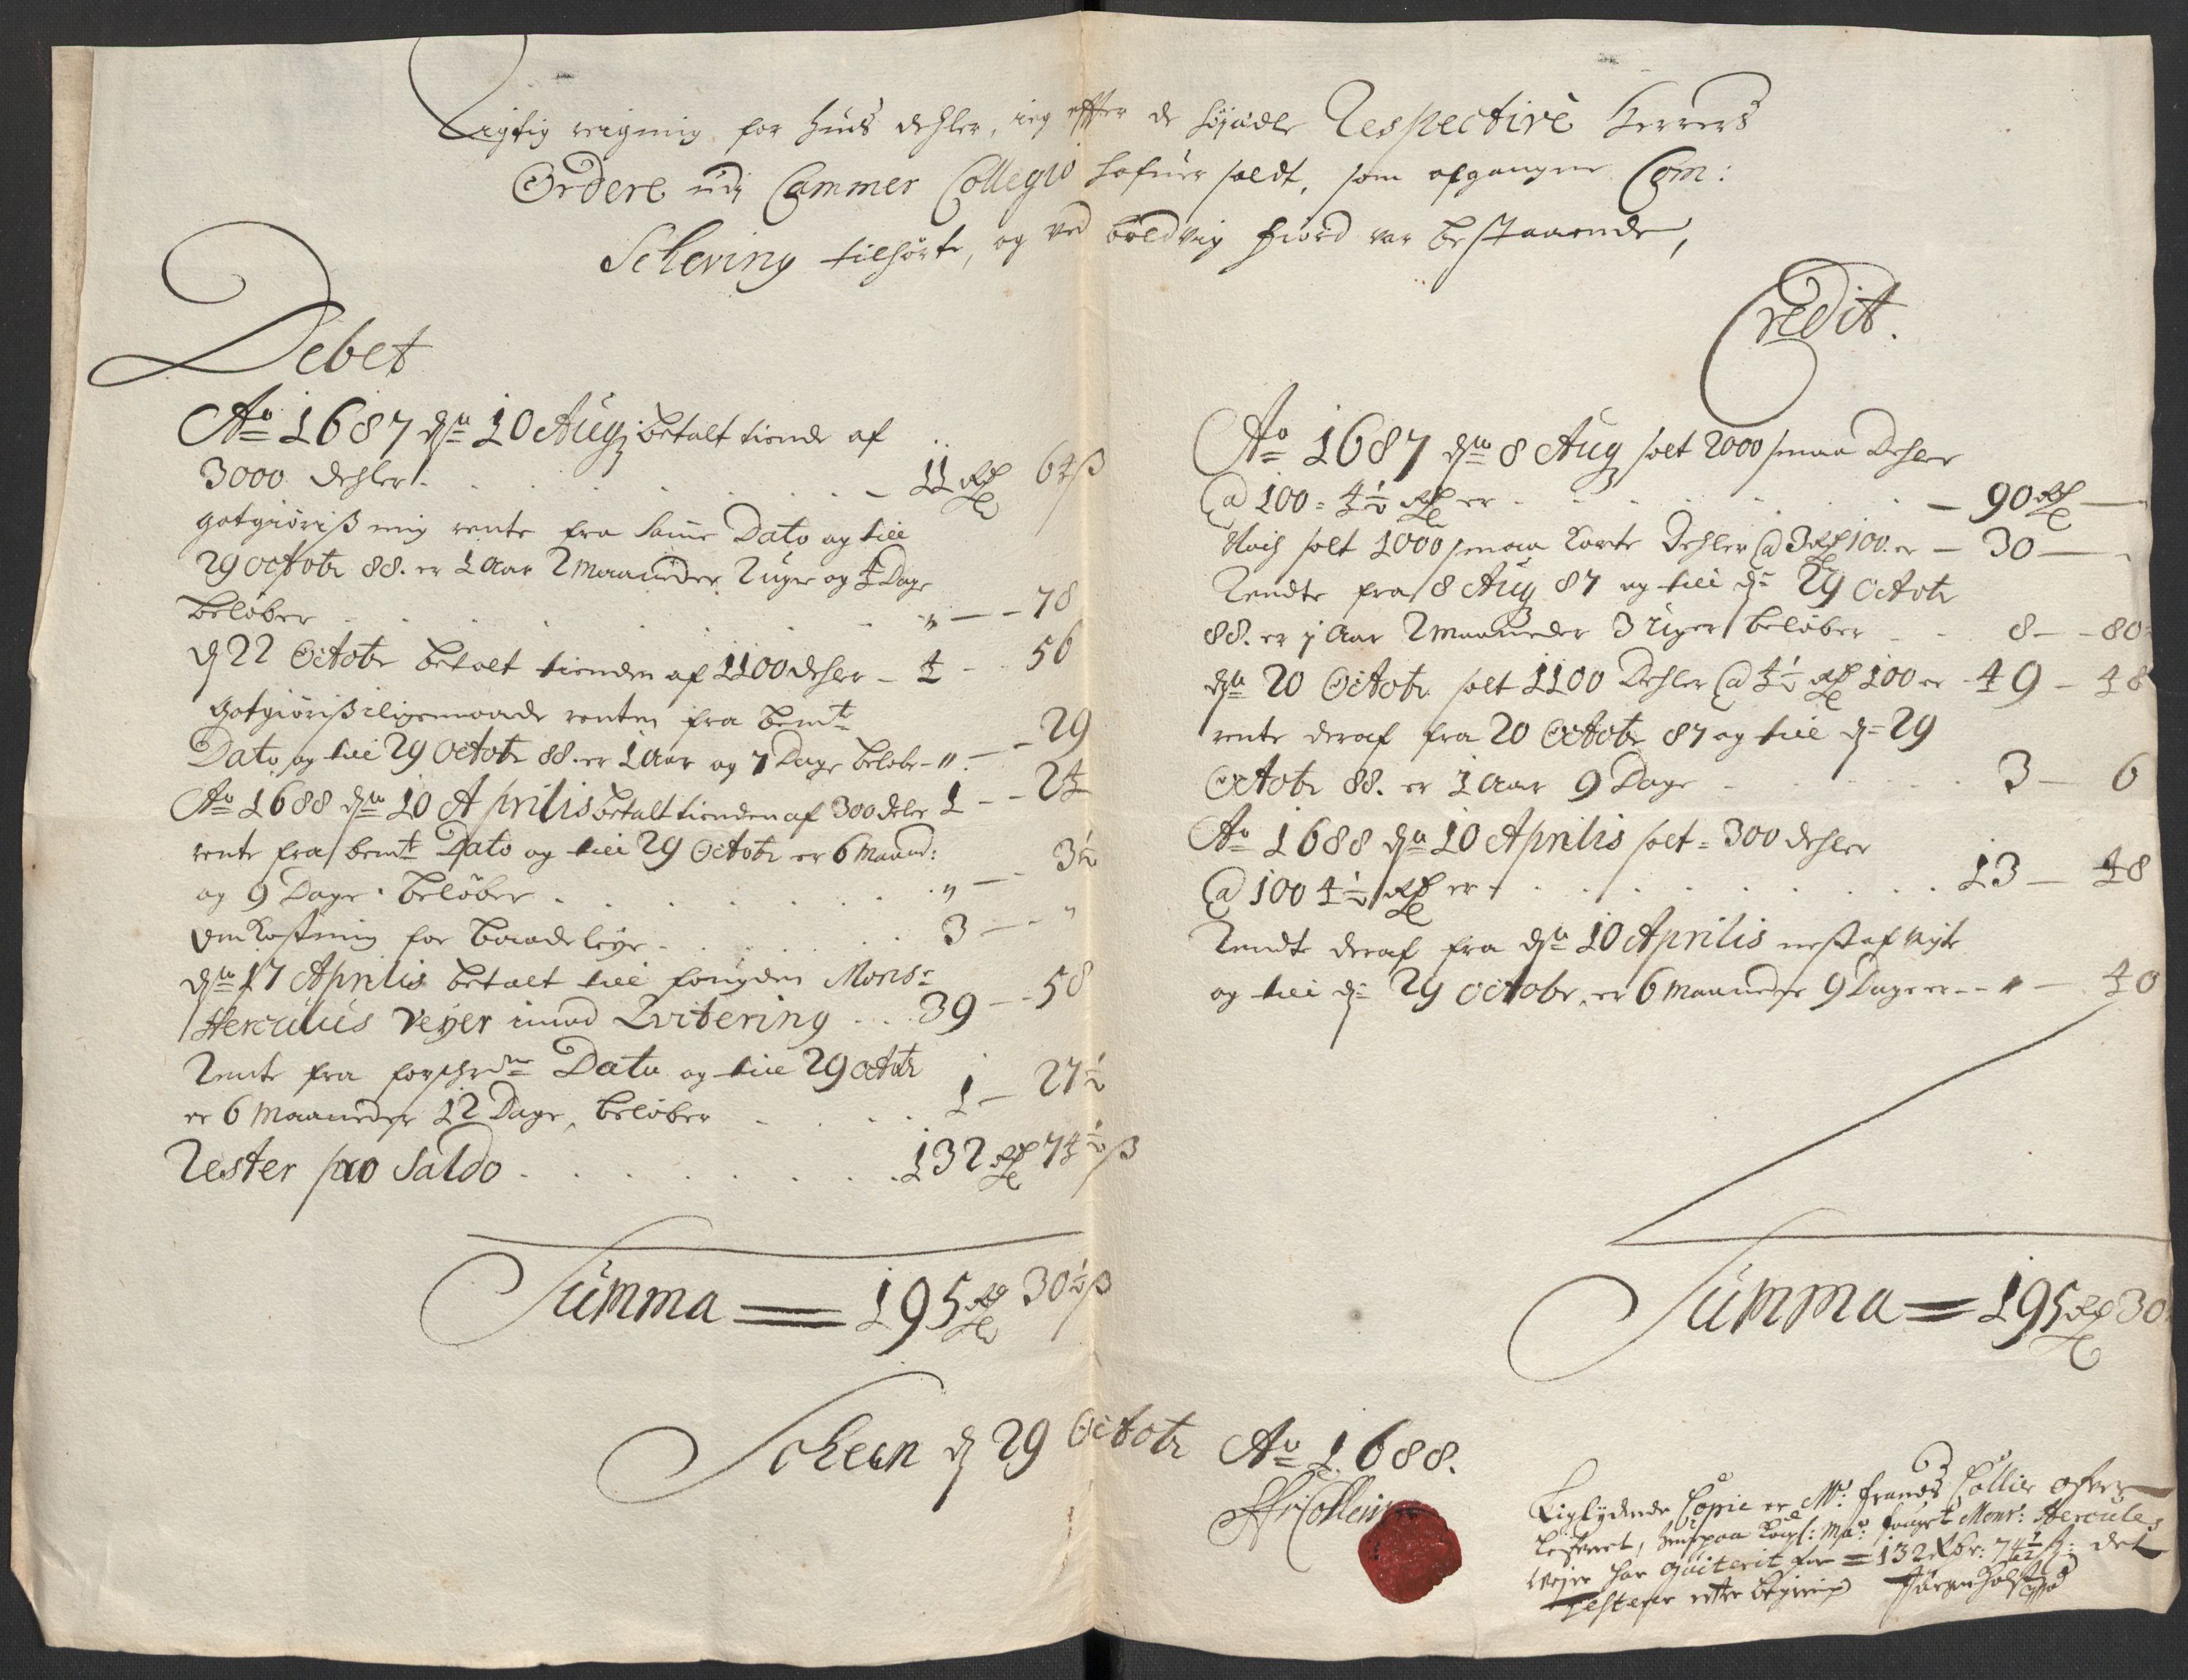 Rigtig reigning for huus dehler, ieg effter de høyædle Respective Herrers
Ordere udj Cammer Collegio hafuer soldt, som afgangne Com:
Schering tilhørte, og ved boldvig fiord var bestaaende,
Debet
Ao 1687 dn 10 Aug: betalt tiende af
3000 dehler. 11 Rd 64 ß
gotgiøriß mig rente fra samme Dato og till
29 Octobr 88. er 1 Aar 2 Maaneder 2 uger og 4 Dage
beløber " — 78
d 22 Octobr betalt tienden af 1100 dehler - 4 - 56
gotgiøriß iligemaade renten fra bemte
Dato og till 29 Octobr 88. er 1 Aar og 7 Dage beløbr - " - 29
Ao 1688 dn 10 Aprilis betalt tienden af 300 deler 1 - 24
rente fra bemte Dato og till 29 Octobr er 6 Maand:
og 9 Dage. beløber . " - 3½
Omkostning for baadeleye. 3 - "
dn 17 Aprilis betalt till fougden Monsr
Herculus Veyer imod Qvitering .. 39 - 58
Rente fra forschrefne Dato og till 29 octobr
er 6 Maaneder 12 Dage, beløber 1 - 27½
Rester pro Saldo . 132 Rd 74½ ß
Summa = 195 Rd 30½ ß
Credit.
Ao 1687 dn 8 Aug solt 2000 smaa Dehler
@ 100 = 4½ Rd er - 90 Rd —
Noch solt 1000 smaa korte Dehler @ 3 Rd 100. er - 30 —
Rendte fra 8 Aug 87 og till dn 29 Octobr
88. er j Aar 2 Maaneder 3 uger beløber 8 - 80
dn 20 Octobr solt 1100 Dehler @ 4½ Rd 100 er 49 - 48
rente deraf fra 20 Octobr 87 og till dn 29
Octobr 88. er 1 Aar 9 Dage 3 - 6
Ao 1688 dn 10 Aprilis solt = 300 dehler
@ 100 4½ Rd er . 13 - 48
Rendte deraf fra dn 10 Aprilis nestafvigte
og till dn 29 octobr, er 6 Maaneder 9 Dage er - " - 40
Summa = 195 Rd 30
Scheen d 29 Octobr Ao 1688.
Collein
Liglydende Copie er Mr: Frands Collier ofver-
lefveret, huorpaa Kongl: Mas: fouget Monr: Hercules
Wejer har qviterit for = 132 Rdr: 74½ ß: det